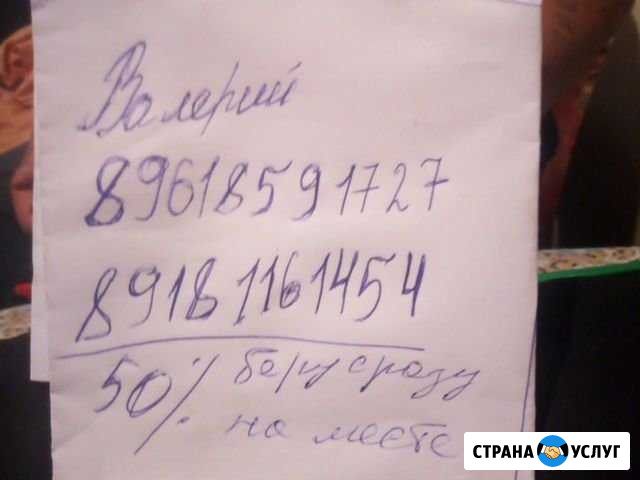 Валерий
89618591727
89181161454
50% беру сразу
на месте
СТРАНА УСЛУГ